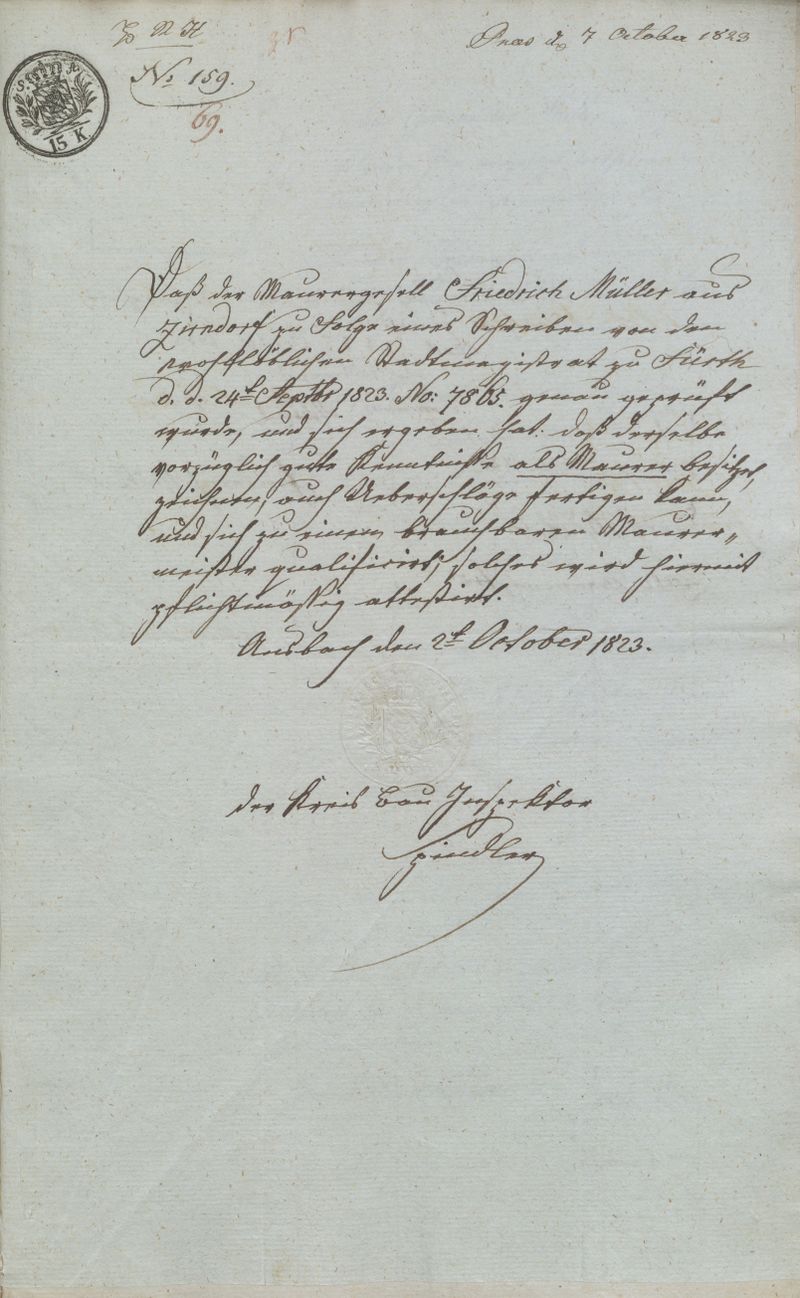 N H
Praes d. 7 October 1823
No 159.
69.
15 K
Daß der Maurergesell Friedrich Müller aus
Zirndorf zu Folge eines Schreiben von dem
wohllöblichen Stadtmagistrat zu Fürth
d. d. 24t Septbr 1823. No: 7865. genau geprüft
wurde, und sich ergeben hat: daß derselbe
vorzüglich gute Kenntniße als Maurer besitzet,
zeichnen, auch Ueberschläge fertigen kann,
und sich zu einem brauchbaren Maurer„
meister qualificirt; solches wird hiermit
pflichtmässig attestirt.
Ansbach den 2t October 1823.
der Kreis Bau Inspektor
Spindler